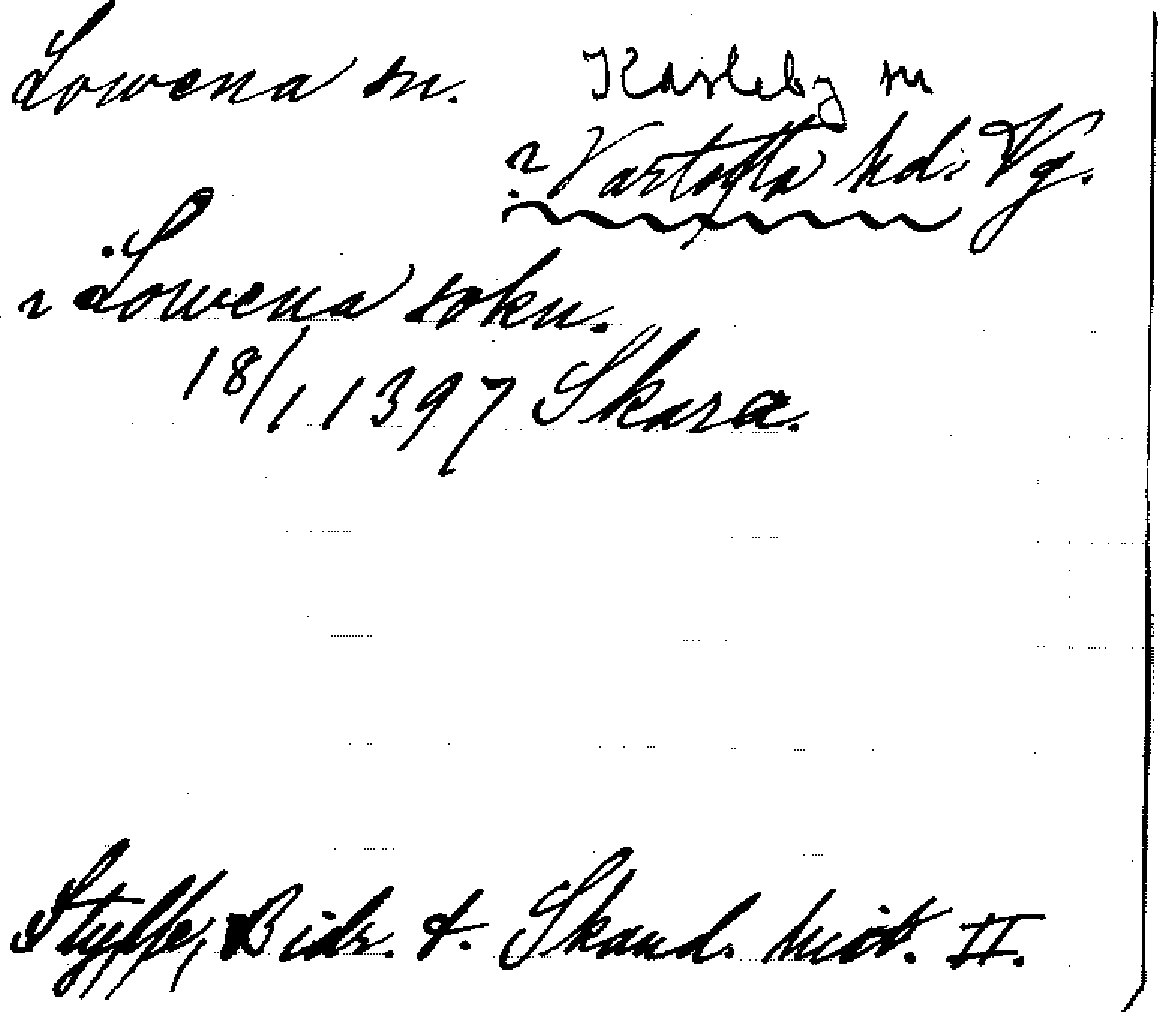 Lowena sn. Karleby sn
? Vartofta hd. Vg.
i Lowena sokn.
18/1 1397 Skara.
Styffe, Bidr. t. Skand. hist. II.